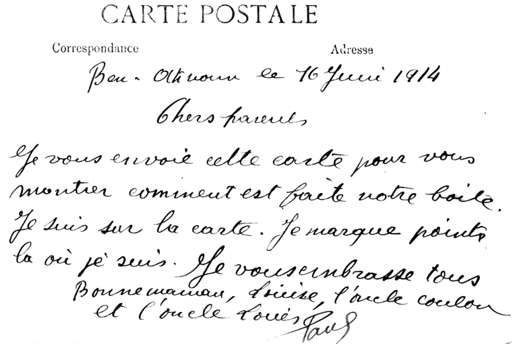 CARTE POSTALE
Correspondance Adresse
Ben-Aknoun le 16 Juin 1914
Chers parents
Je vous envoie cette carte pour vous
montrer comment est faite notre boite.
Je suis sur la carte. Je marque points
la où je suis. Je vous embrasse tous
Bonnemaman, Louise, l'oncle coulon
et l'oncle Louis Paul